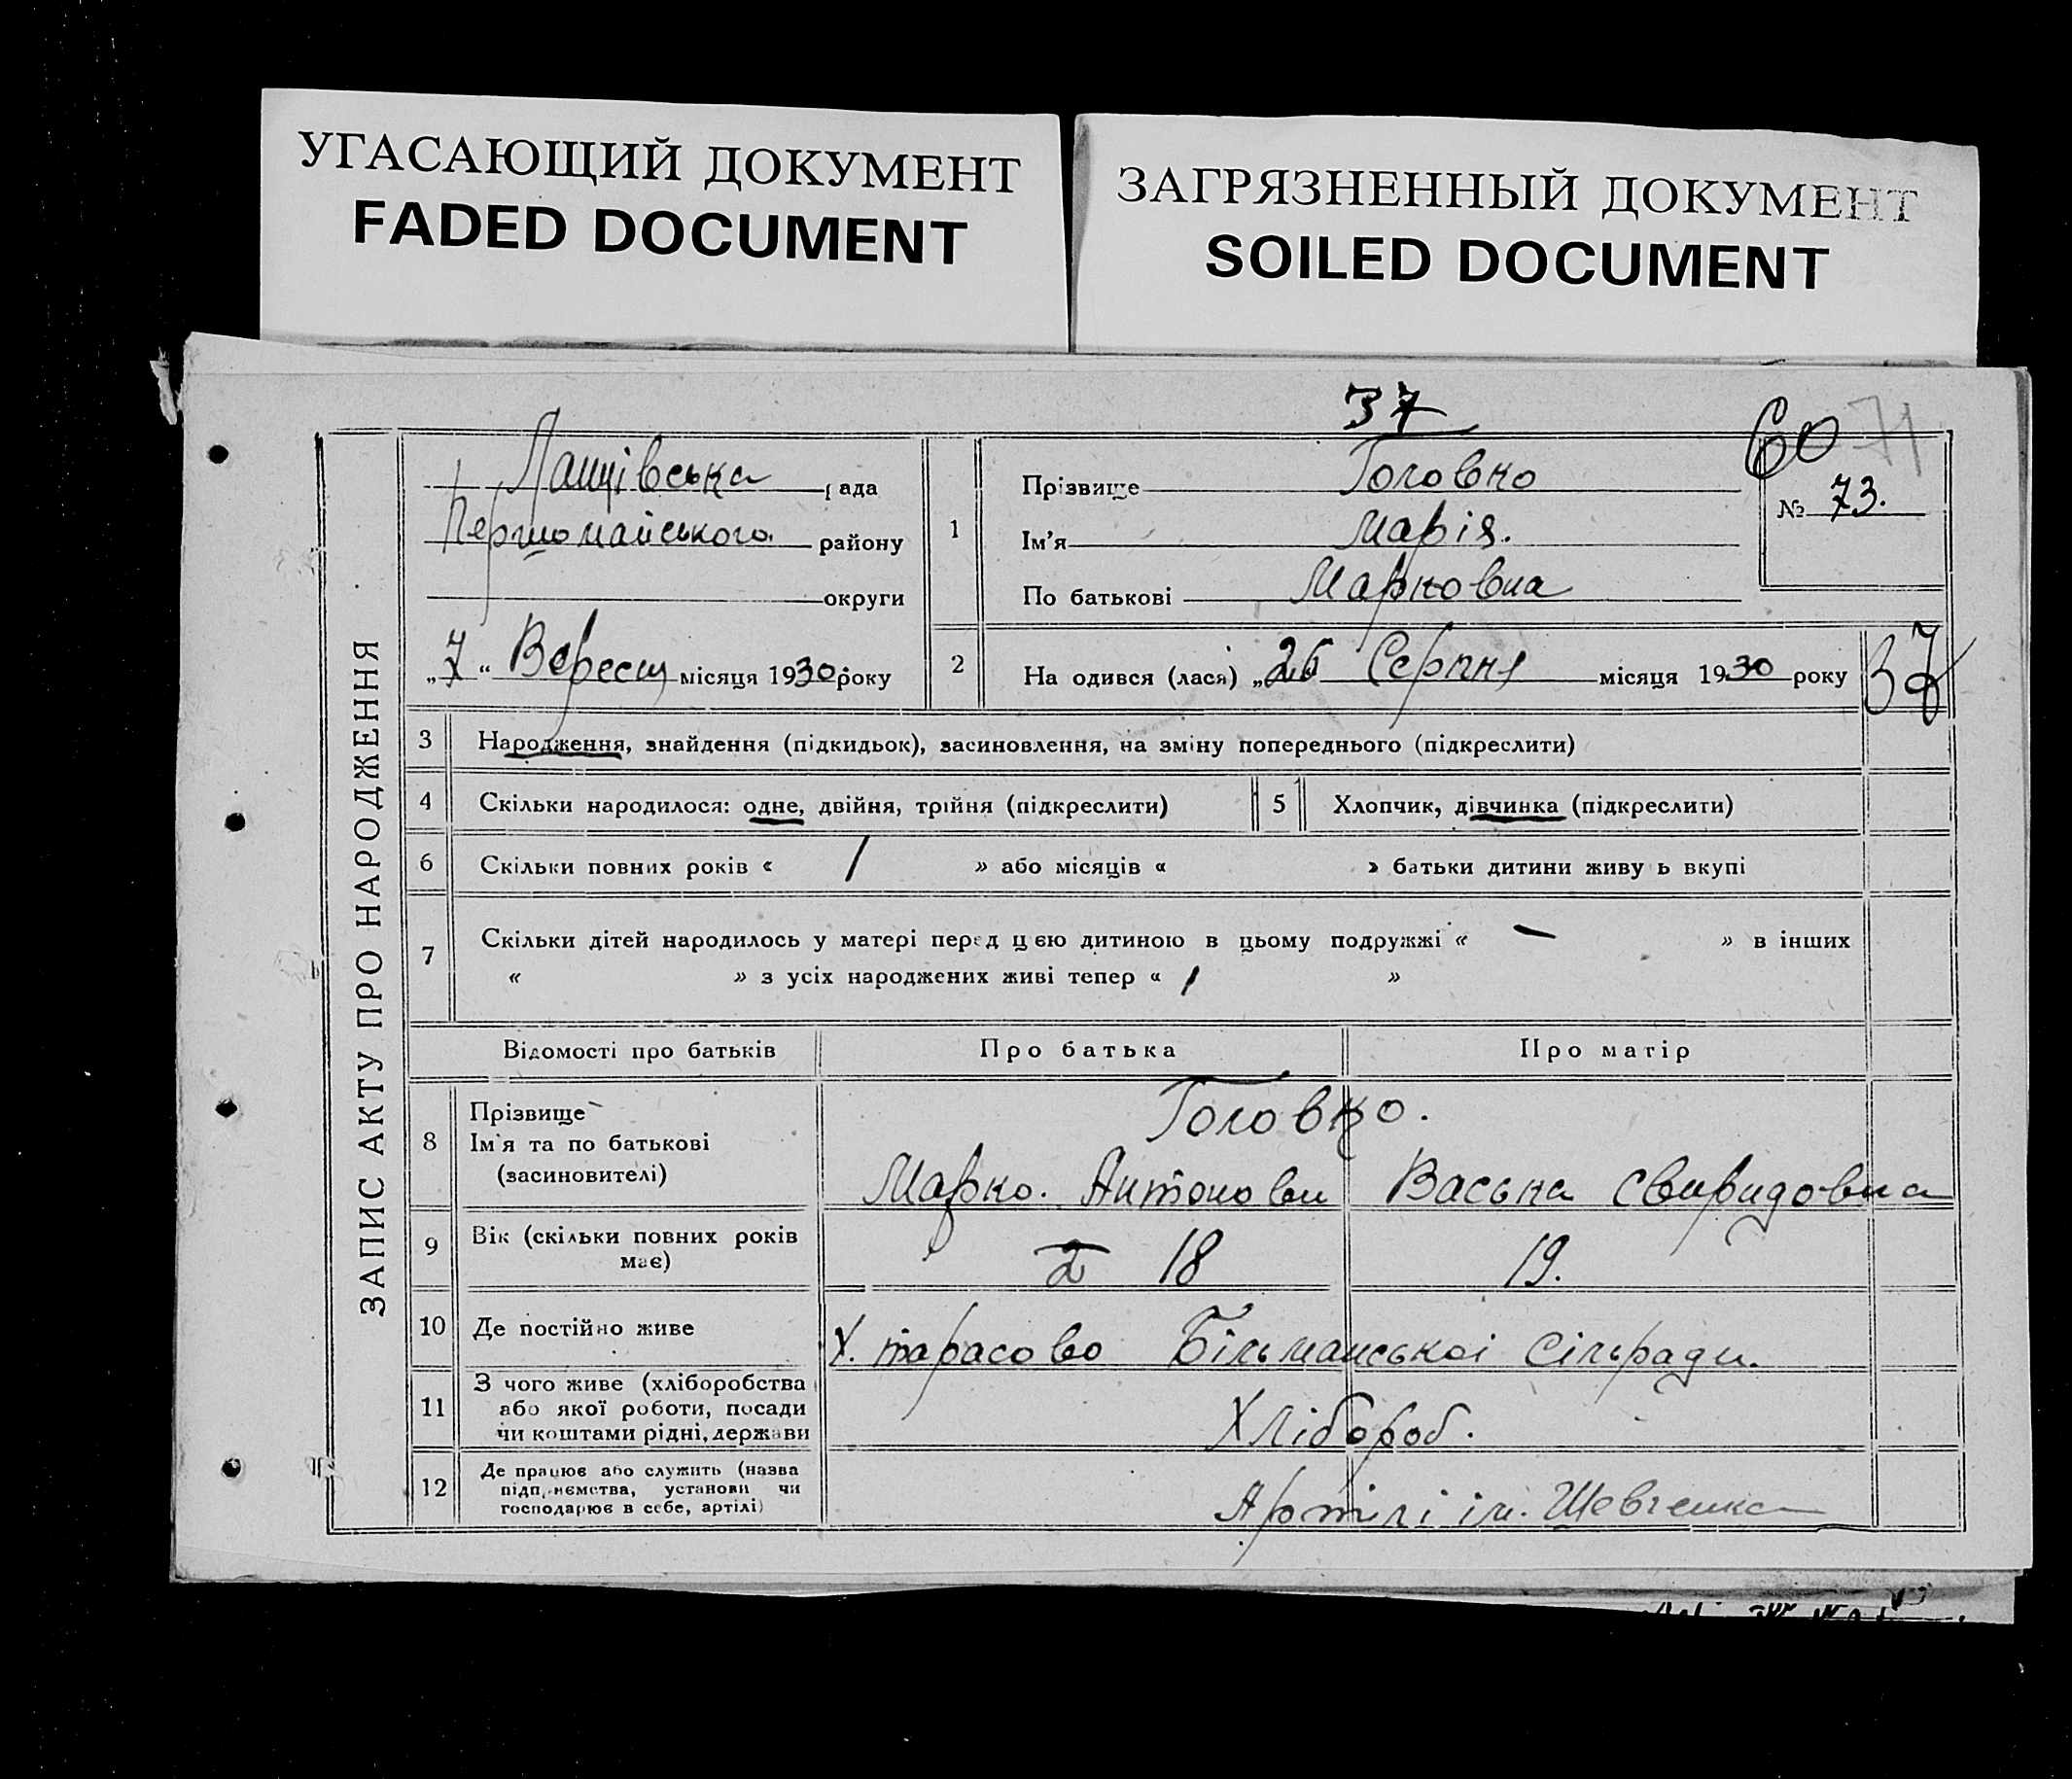 УГАСАЮЩИЙ ДОКУМЕНТ
FADED DOCUMENT
ЗАГРЯЗНЕННЫЙ ДОКУМЕНТ
SOILED DOCUMENT
37
60 71
ЗАПИС АКТУ ПРО НАРОДЖЕННЯ
рада
Першомайського району
округи
„7“ Вересня місяця 1930 року
1
Прізвище Головко
Ім'я Марія.
По батькові Марковна
№ 73.
2 На одився (лася) „26 Серпня місяця 1930 року
37
3 Народження, знайдення (підкидьок), засиновлення, на зміну попереднього (підкреслити)
4 Скільки народилося: одне, двійня, трійня (підкреслити)
5 Хлопчик, дівчинка (підкреслити)
6 Скільки повних років « / » або місяців « » батьки дитини живу ь вкупі
7 Скільки дітей народилось у матері перед цією дитиною в цьому подружжі « — » в інших
« » з усіх народжених живі тепер « 1 »
Відомості про батьків Про батька Про матір
8 Прізвище Головко.
Ім'я та по батькові
(засиновителі)
Марко. Антонови Васька Свиридовна
9 Вік (скільки повних років
має)
2 18 19.
10 Де постійно живе Х. тарасово Більманської Сільради.
11 З чого живе (хліборобства
або якої роботи, посади
чи коштами рідні, держави
Хлібороб.
12 Де працює або служить (назва
підп, ємства, установи чи
господарює в себе, артілі)
Артілі ім. Шевченка